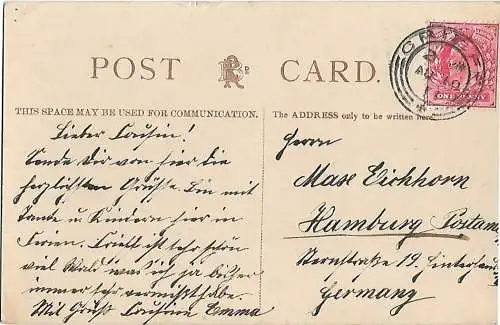 POST CARD.
THIS SPACE MAY BE USED FOR COMMUNICATION.
The ADDRESS only to be written here.
ONE PENNY
Lieber Cousin!
Sende Dir von hier die
herzlichsten Grüsse. Bin mit
Tante u. Kindern hier in
Ferien. Es ist sehr schön
viel Wald was ich ja bisher
immer sehr vermißt habe.
Mit Gruß Cousine Emma
Herrn
Maxe Eichhorn
Hamburg Postamt
Sternstraße 19. Hinterhaus
Germany